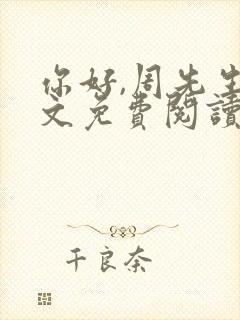 你好,周先生
文免费閱讀
千良奈